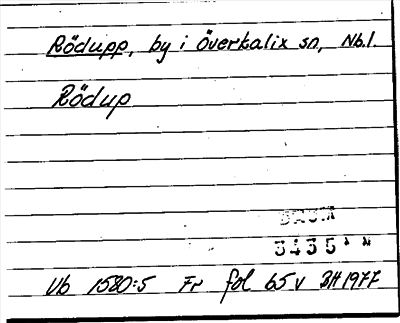 Rödupp, by i Överkalix sn, Nb.l.
Rödup
3435
Vb 1580:5 Fr fol 65 v BH 1977